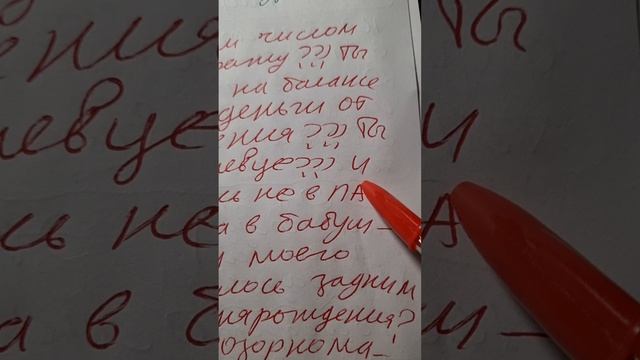 м числом
рату??? Ты
на балансе
деньги от
ения??? Ты
левце??? И
сь не в ПА
а в бабуш-
и моего
лось задним
нярождения?
озорнома-!